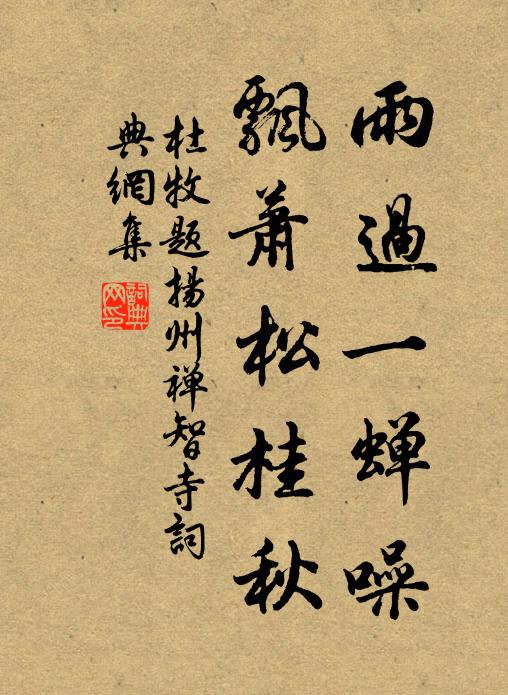 雨過一蝉噪
飄蕭松桂秋
杜牧题揚州禅智寺詞
典網集
詞典网印